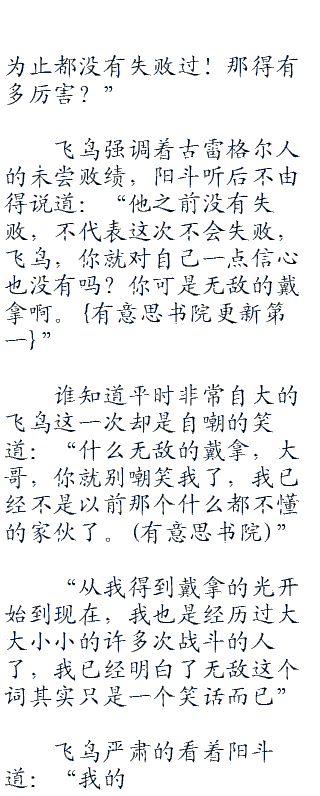 为止都没有失败过！那得有
多厉害？”
飞鸟强调着古雷格尔人
的未尝败绩，阳斗听后不由
得说道：“他之前没有失
败，不代表这次不会失败，
飞鸟，你就对自己一点信心
也没有吗？你可是无敌的戴
拿啊。{有意思书院更新第
一}”
谁知道平时非常自大的
飞鸟这一次却是自嘲的笑
道：“什么无敌的戴拿，大
哥，你就别嘲笑我了，我已
经不是以前那个什么都不懂
的家伙了。(有意思书院)”
“从我得到戴拿的光开
始到现在，我也是经历过大
大小小的许多次战斗的人
了，我已经明白了无敌这个
词其实只是一个笑话而已”
飞鸟严肃的看着阳斗
道：“我的